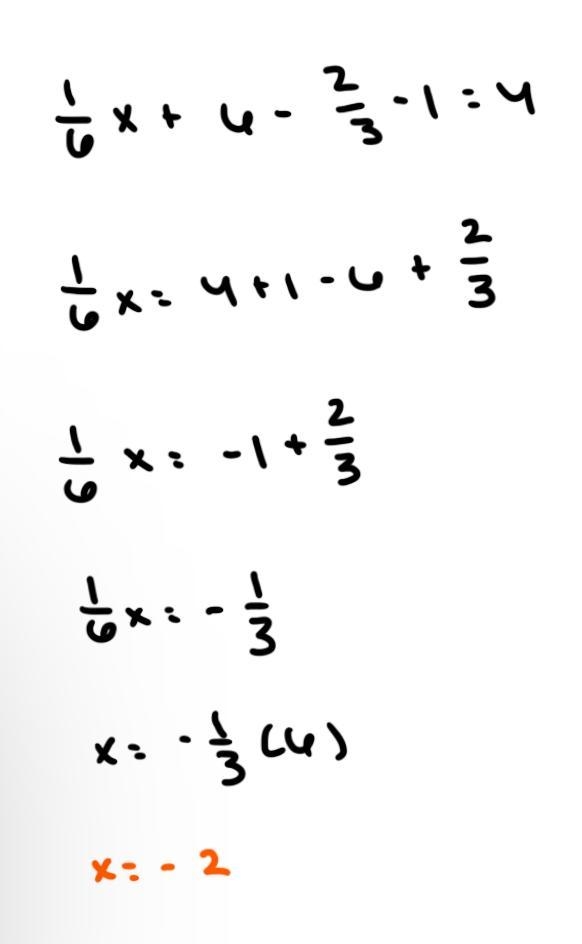 1/6 x + 6 - 2/3 - 1 = 4
1/6 x = 4 + 1 - 6 + 2/3
1/6 x = -1 + 2/3
1/6 x = - 1/3
x = - 1/3 (6)
x = - 2